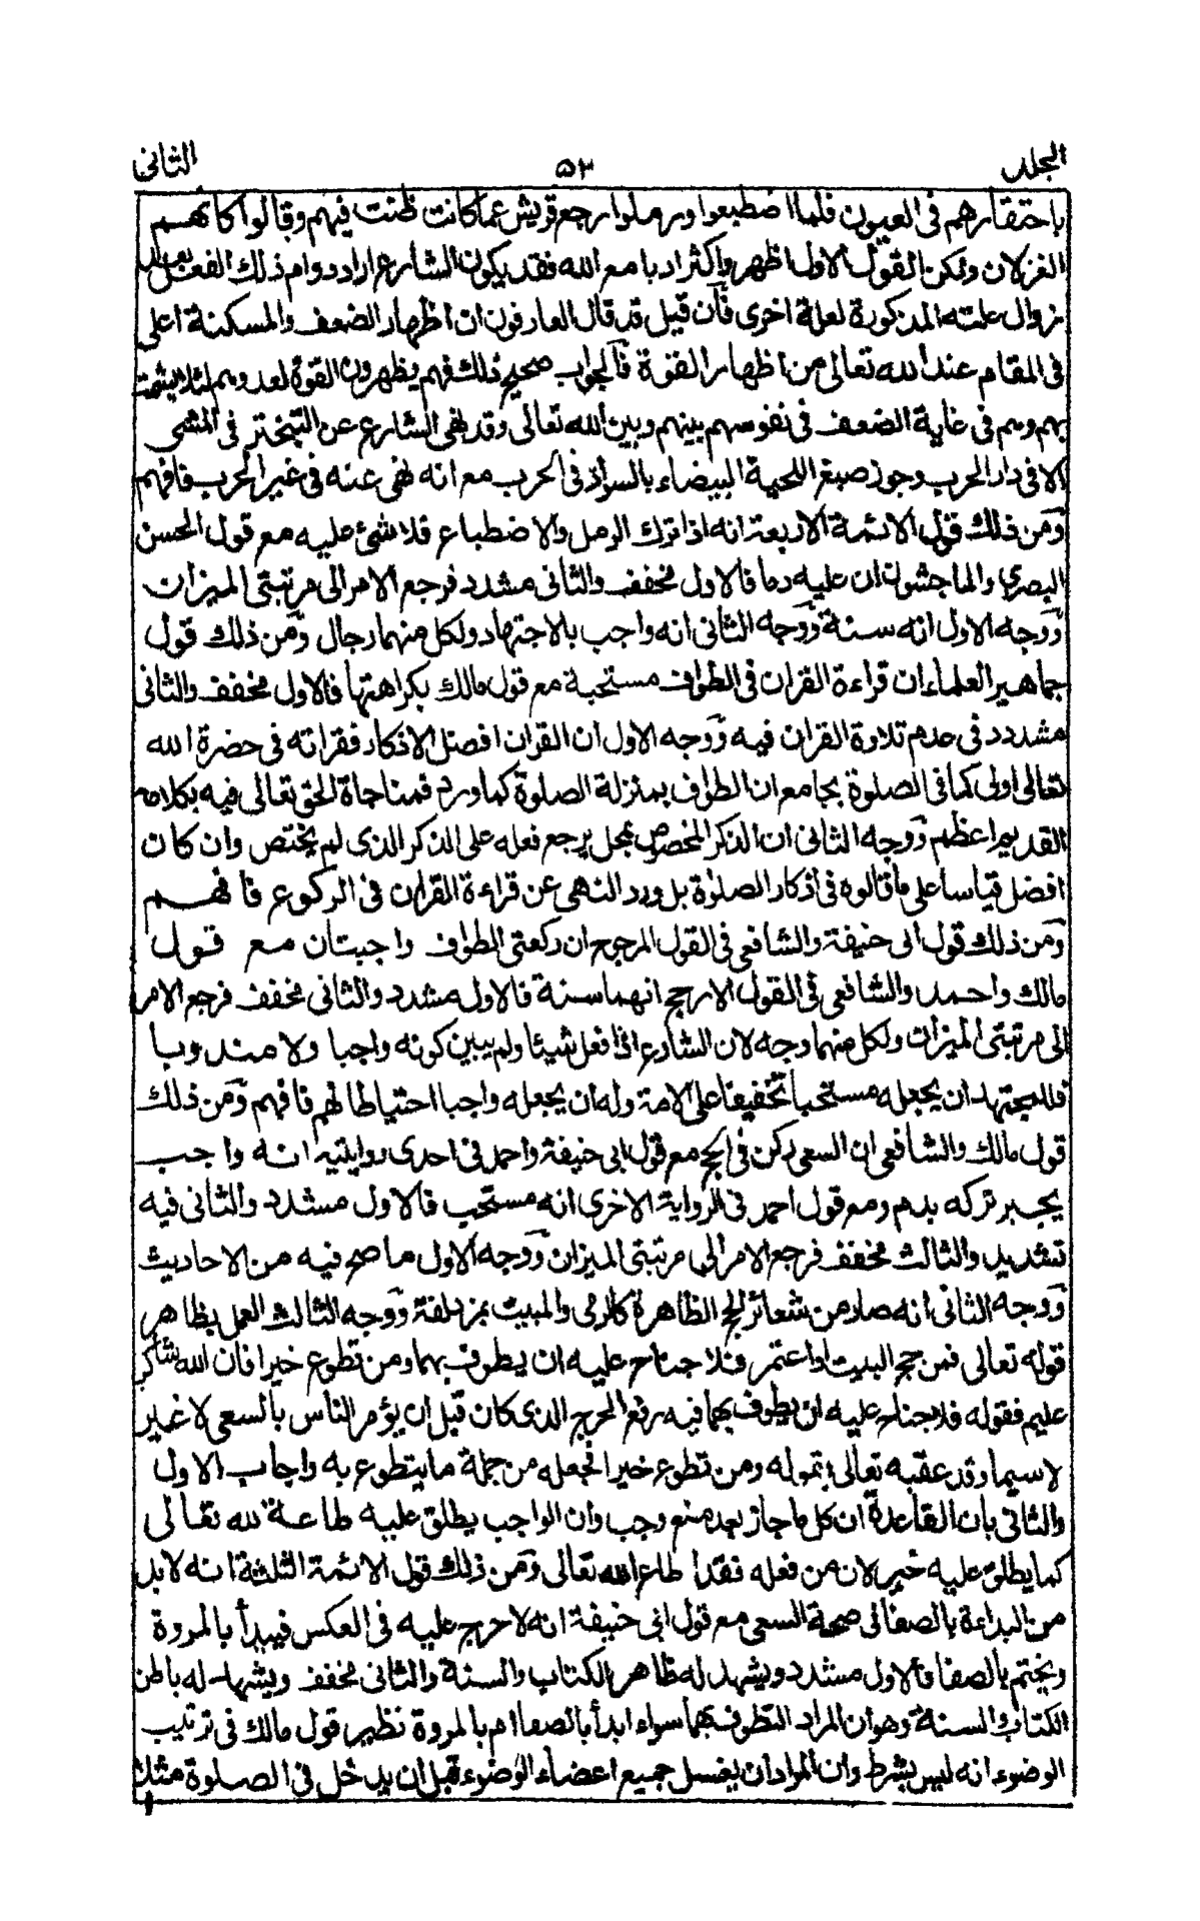 المجلد ٥٣ الثاني
باحتقارهم فى العيون فلما اضطبعوا ورملوا رجع قريش عما كانت ظنت فيهم وقالوا كانهم
الغزلان ولكن القول الاول اظهر واكثر ادبا مع الله فقد يكون الشارع اراد دوام ذلك الفعل بعد
زوال علته المذكورة لعلة اخرى فآن قيل قد قال العارفون ان اظهار الضعف والمسكنة اعلى
فى المقام عند الله تعالى من اظهار القوة فآلجواب صحيح ذلك فهم يظهرون القوة لعدوهم لئلا يشمت
بهم وهم فى غاية الضعف فى نفوسهم بينهم وبين الله تعالى وقد نهى الشارع عن التبختر فى المشى
الا فى دار الحرب وجوز صبغ اللحية البيضاء بالسواد فى الحرب مع انه نهى عنه فى غير الحرب فافهم
وٓمن ذلك قول الائمة الاربعة انه اذا ترك الرمل والاضطباع فلا شئ عليه مع قول الحسن
البصرى والماجشون ان عليه دما فالاول مخفف والثانى مشدد فرجع الامر الى مرتبتى الميزان
وٓوجه الاول انه سنة وٓوجه الثانى انه واجب بالاجتهاد ولكل منهما رجال وٓمن ذلك قول
جماهير العلماء ان قراءة القران فى الطواف مستحبة مع قول مالك بكراهتها فالاول مخفف والثانى
مشدد فى عدم تلاوة القران فيه وٓوجه الاول ان القران افضل الاذكار فقراته فى حضرة الله
تعالى اولى كما فى الصلوة بجامع ان الطواف بمنزلة الصلوة كما ورد فمناجاة الحق تعالى فيه بكلامه
القديم اعظم وٓوجه الثانى ان الذكر المخصوص بمحل يرجع فعله على الذكر الذى لم يختص وان كان
افضل قياسا على ما قالوه فى اذكار الصلوة بل ورد النهى عن قراءة القران فى الركوع فافهم
وٓمن ذلك قول ابى حنيفة والشافعى فى القول المرجح ان ركعتى الطواف واجبتان مع قول
مالك واحمد والشافعى فى القول الارجح انهما سنة فالاول مشدد والثانى مخفف فرجع الامر
الى مرتبتى الميزان ولكل منهما وجه لان الشارع اذا فعل شيئا ولم يبين كونه واجبا ولا مندوبا
فللمجتهد ان يجعله مستحبا تخفيفا على الامة وله ان يجعله واجبا احتياطا لهم فافهم وٓمن ذلك
قول مالك والشافعى ان السعى ركن فى الحج مع قول ابى حنيفة واحمد فى احدى روايتيه انه واجب
يجبر تركه بدم ومع قول احمد فى الرواية الاخرى انه مستحب فالاول مشدد والثانى فيه
تشديد والثالث مخفف فرجع الامر الى مرتبتى الميزان وٓوجه الاول ما صح فيه من الاحاديث
وٓوجه الثانى انه صار من شعائر الحج الظاهرة كالرمى والمبيت بمزدلفة وٓوجه الثالث العمل بظاهر
قوله تعالى فمن حج البيت او اعتمر فلا جناح عليه ان يطوف بهما ومن تطوع خيرا فان الله شاكر
عليم فقوله فلا جناح عليه ان يطوف بهما فيه رفع الحرج الذى كان قبل ان يؤمر الناس بالسعى لا غير
لا سيما وقد عقبه تعالى بقوله ومن تطوع خيرا فجعله من جملة ما يتطوع به واجاب الاول
والثانى بان القاعدة ان كل ما جاز بعد منع وجب وان الواجب يطلق عليه طاعة لله تعالى
كما يطلق عليه خير لان من فعله فقد اطاع الله تعالى وٓمن ذلك قول الائمة الثلثة انه لا بد
من البداءة بالصفا فى صحة السعى مع قول ابى حنيفة انه لا حرج عليه فى العكس فيبدأ بالمروة
ويختم بالصفا فالاول مشدد ويشهد له ظاهر الكتاب والسنة والثانى مخفف ويشهد له باطن
الكتاب والسنة وهو ان المراد التطوف بهما سواء ابدأ بالصفا ام بالمروة نظير قول مالك فى ترتيب
الوضوء انه ليس بشرط وان المراد ان يغسل جميع اعضاء الوضوء قبل ان يدخل فى الصلوة مثلا